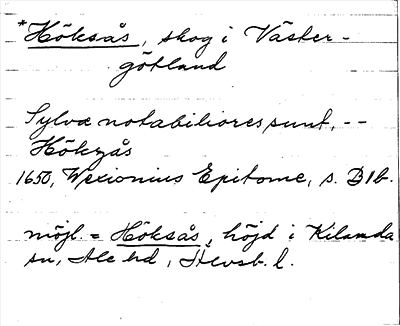 *Höksås, skog i Väster-
götland
Sylvæ notabiliores sunt, --
Hökzås
1650, Wexionius Epitome, s. B1b.
möjl. = Höksås, höjd i Kilanda
sn, Ale hd, Älvsb. l.